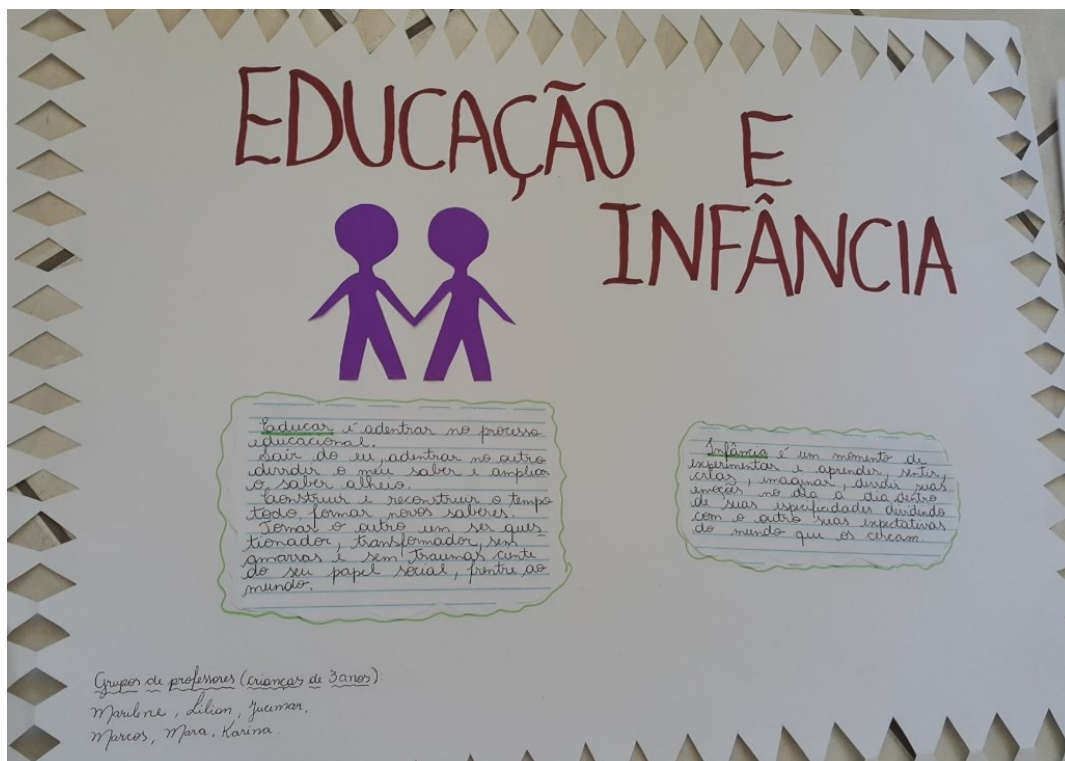 EDUCAÇÃO E
INFÂNCIA
Educar é adentrar no processo
educacional.
Sair do eu, adentrar no outro
dividir o meu saber e ampliar
o, saber alheio.
Construir e reconstruir o tempo
todo, formar novos saberes.
Tornar o outro um ser ques
tionador, transformador, sem
amarras e sem traumas ciente
do seu papel social, frente ao
mundo.
Infância é um momento de
experimentar e aprender, sentir,
criar, imaginar, dividir suas
emoções no dia a dia dentro
de suas especificidades dividindo
com o outro suas expectativas
do mundo que os cercam
Grupos de professores (crianças de 3 anos):
Marilene, Lilian, Jucimar,
Marcos, Mara, Karina.